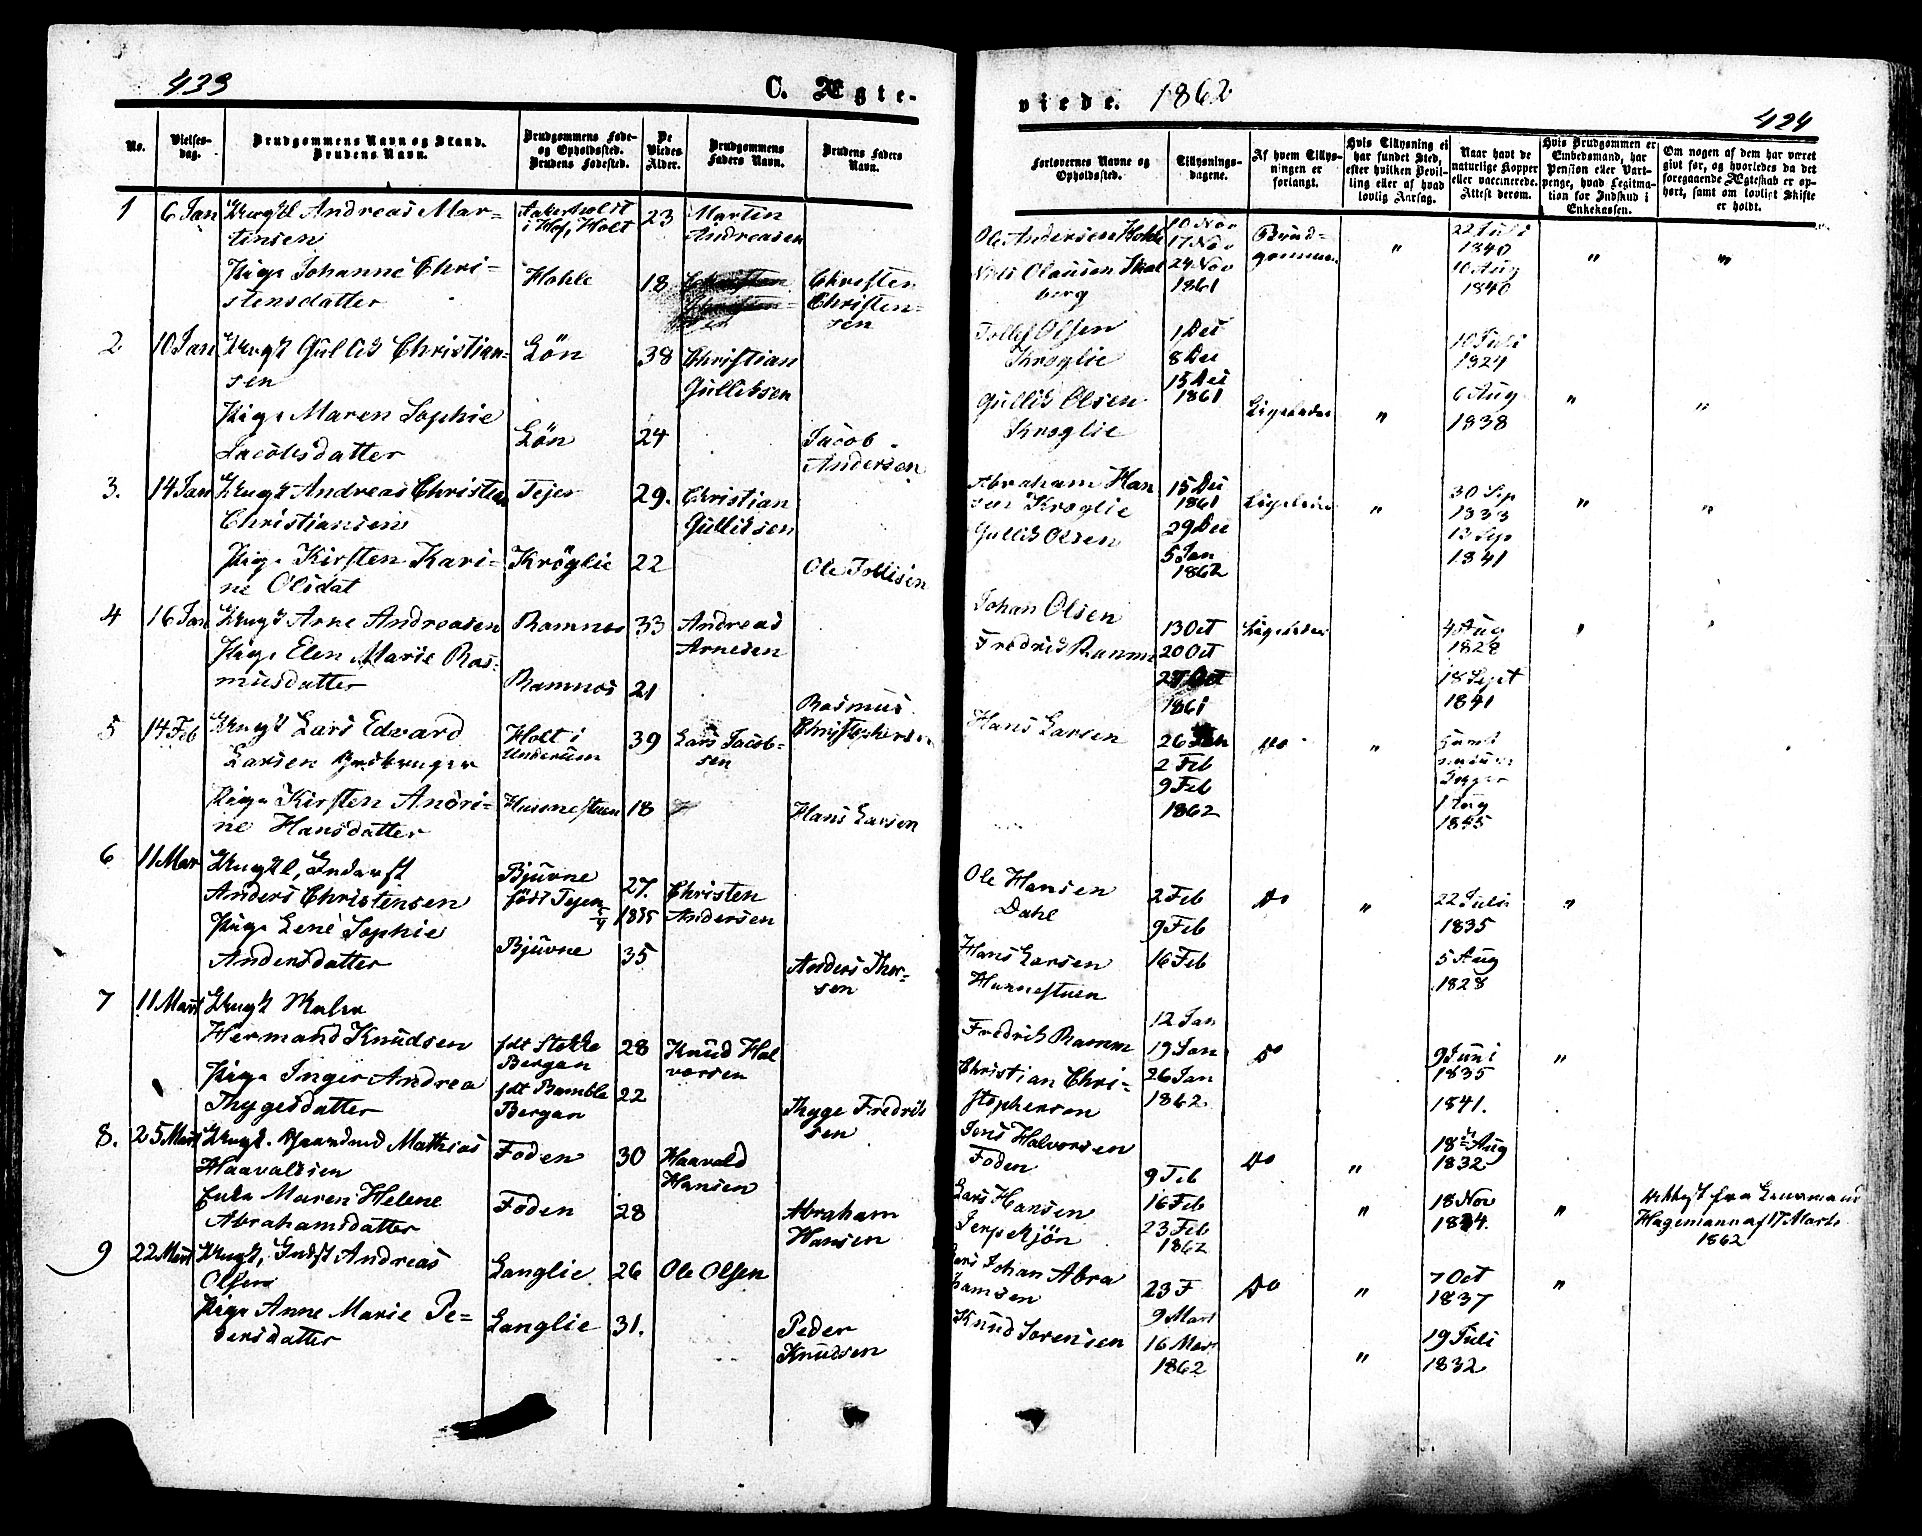 433
C. Ægte-
No.
Vielses-
dag.
Brudgommens Navn og Stand.
Brudens Navn.
Brudgommens Føde-
og Opholdssted.
Brudens Fødested.
De
Viedes
Alder.
Brudgommens
Faders Navn.
Brudens Faders
Navn.
1 6 Jan Andreas Mar- i Hof, Holt 23 Marten
tensen Andreasen
Pige Johanne Chri- Hohle 18 Christen
stensdatter Christen-
sen
2 10 Jan Ungk Gullik Christian- Løn 38 Christian
sen Gulliksen
Pige Maren Sophie
Jacobsdatter Løn 24 Jacob
Andersen
3. 14 Jan Ungk Andreas Christian Tejer 29. Christian
Christiansen Gulliksen
Pige Kirsten Kari- Krøglie 22 Ole Tollisen
ne Olsdat
4 16 Jan Ungk Arne Andreasen Ramnes 33 Andreas
Pige Elen Marie Ras- Arnesen
musdatter Ramnes 21
Rasmus
5 14 Feb Ungk Lars Edvard Holt i 39 Lars Jacob- Christophersen
Larsen Underum sen
Pige Kirsten Andri- 18 Hans Larsen
ne Hansdatter
6 11 Mar Bjuvne
Anders Christensen født Tejen 27. Christen
Pige Lene Sophie 1835 Andersen
Andersdatter Bjuvne 35 Anders Thor-
sen
7 11 Mart Ungk
Hermand Knudsen fdt Stokke 28 Knud Hal
Bergan vorsen
Pige Inger Andrea fdt Bamble 22
Thygesdatter Bergan Thyge Fredrik
sen
8. 25 Mart Mathias Foden 30 Haavald
Haavaldsen Hansen
Enke Maren Helene Foden 28 Abraham
Abrahamsdatter Hansen
9 22 Mart Ungk, Indst Andreas Langlie 26 Ole Olsen
Olsen
Pige Anne Marie Pe- Langlie 31. Peder
dersdatter Knudsen
viede. 1862
424
Forlovernes Navne og
Opholdssted.
Tillysnings-
dagene.
Af hvem Tillys-
ningen er
forlangt.
Hvis Tillysning ei
har fundet Sted,
efter hvilken Bevil-
ling eller af hvad
lovlig Aarsag.
Naar havt de
naturlige Kopper
eller vaccinerede.
Attest derom.
Hvis Brudgommen er
Embedsmand, har
Pension eller Vart-
penge, hvad Legitima-
tion for Indskud i
Enkekassen.
Om nogen af dem har været
givt før, og hvorledes da det
foregaaende Ægteskab er op-
hørt, samt om lovligt Skifte
er holdt.
Ole Andersen Hohle 10 Nov Brud- " 22 Juli " "
17 Nov gommen 1840
Nils Olaussen Skal 24 Nov 10 Aug
berg 1861 1840
Tollef Olsen 1 Dec 10 Juli
Krøglie 8 Dec 1824
15 Dec
Gullik Olsen 1861 Ligeledes " 6 Aug " "
Krøglie 1838
Abraham Han 15 Dec 30 Sep " "
sen Krøglie 1861 Ligeledes " 1833
Gullik Olsen 29 Dec 13 Sep
5 Jan 1841
1862
Johan Olsen 13 Oct Ligeledes 4 Aug " "
Fredrik Ramm 20 Oct 1828
27 Oct 18 Sept
1861 1841
Hans Larsen 26 Jan Do "
2 Feb
9 Feb 1 Aug
1862 1845
Ole Hansen 2 Feb Do " 22 Juli "
Dahl 9 Feb 1835
Hans Larsen 16 Feb 5 Aug
1828
12 Jan
Fredrik Ramm 19 Jan Do 9 Juni "
Christian Chri- 26 Jan 1835
stophersen 1862 1841.
Jens Halvorsen 18 Aug
Foden 9 Feb Do " 1832
Lars Hansen 16 Feb " 18 Nov " fra Lensmand
23 Feb 1834. Hagemann af 17 Marts
1862 1862
Lars Johan Abra 7 Oct "
hamsen 23 F Do " 1837
Knud Sorensen 9 Mart 19 Juli
16 Mar " 1832
1862